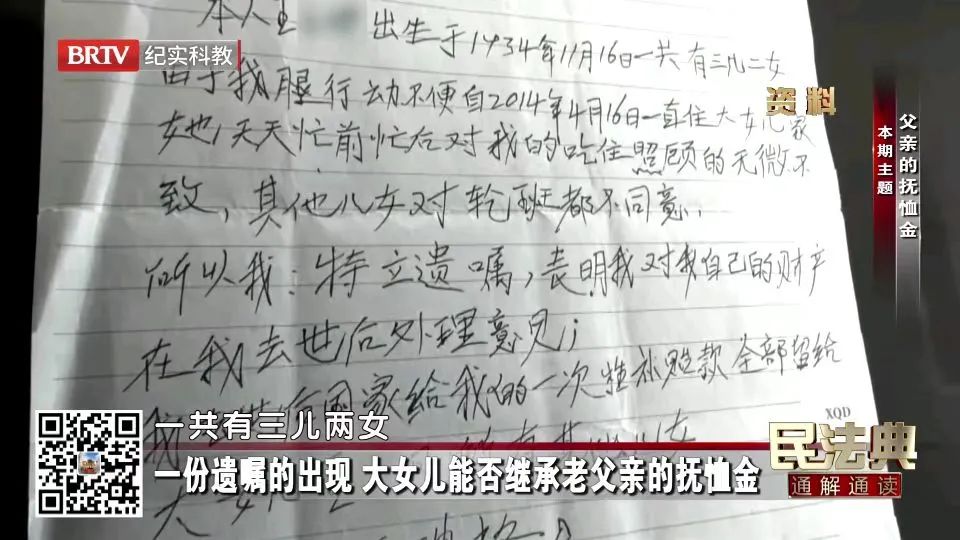 本人王 出生于1934年11月16日一共有三儿二女
BRTV 纪实科教
由于我腿行动不便自2014年4月16日一直住大女儿家
资料
女她，天天忙前忙后对我的吃住照顾的无微不
致，其他儿女对轮班都不同意，
所以我：特立遗嘱，表明我对我自己的财产
在我去世后处理意见；
我 后国家给我的一次性补贴款全部留给
大女儿
父亲的抚恤金
本期主题
一共有三儿两女
一份遗嘱的出现 大女儿能否继承老父亲的抚恤金
XQD
民法典
通解通读